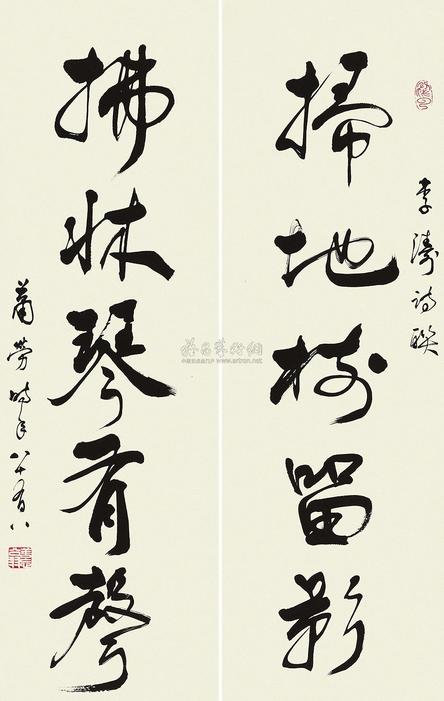 李濤詩聯
掃地樹留影
拂牀琴有聲
蕭勞時年八十有八
雅昌藝術網
www.artron.net